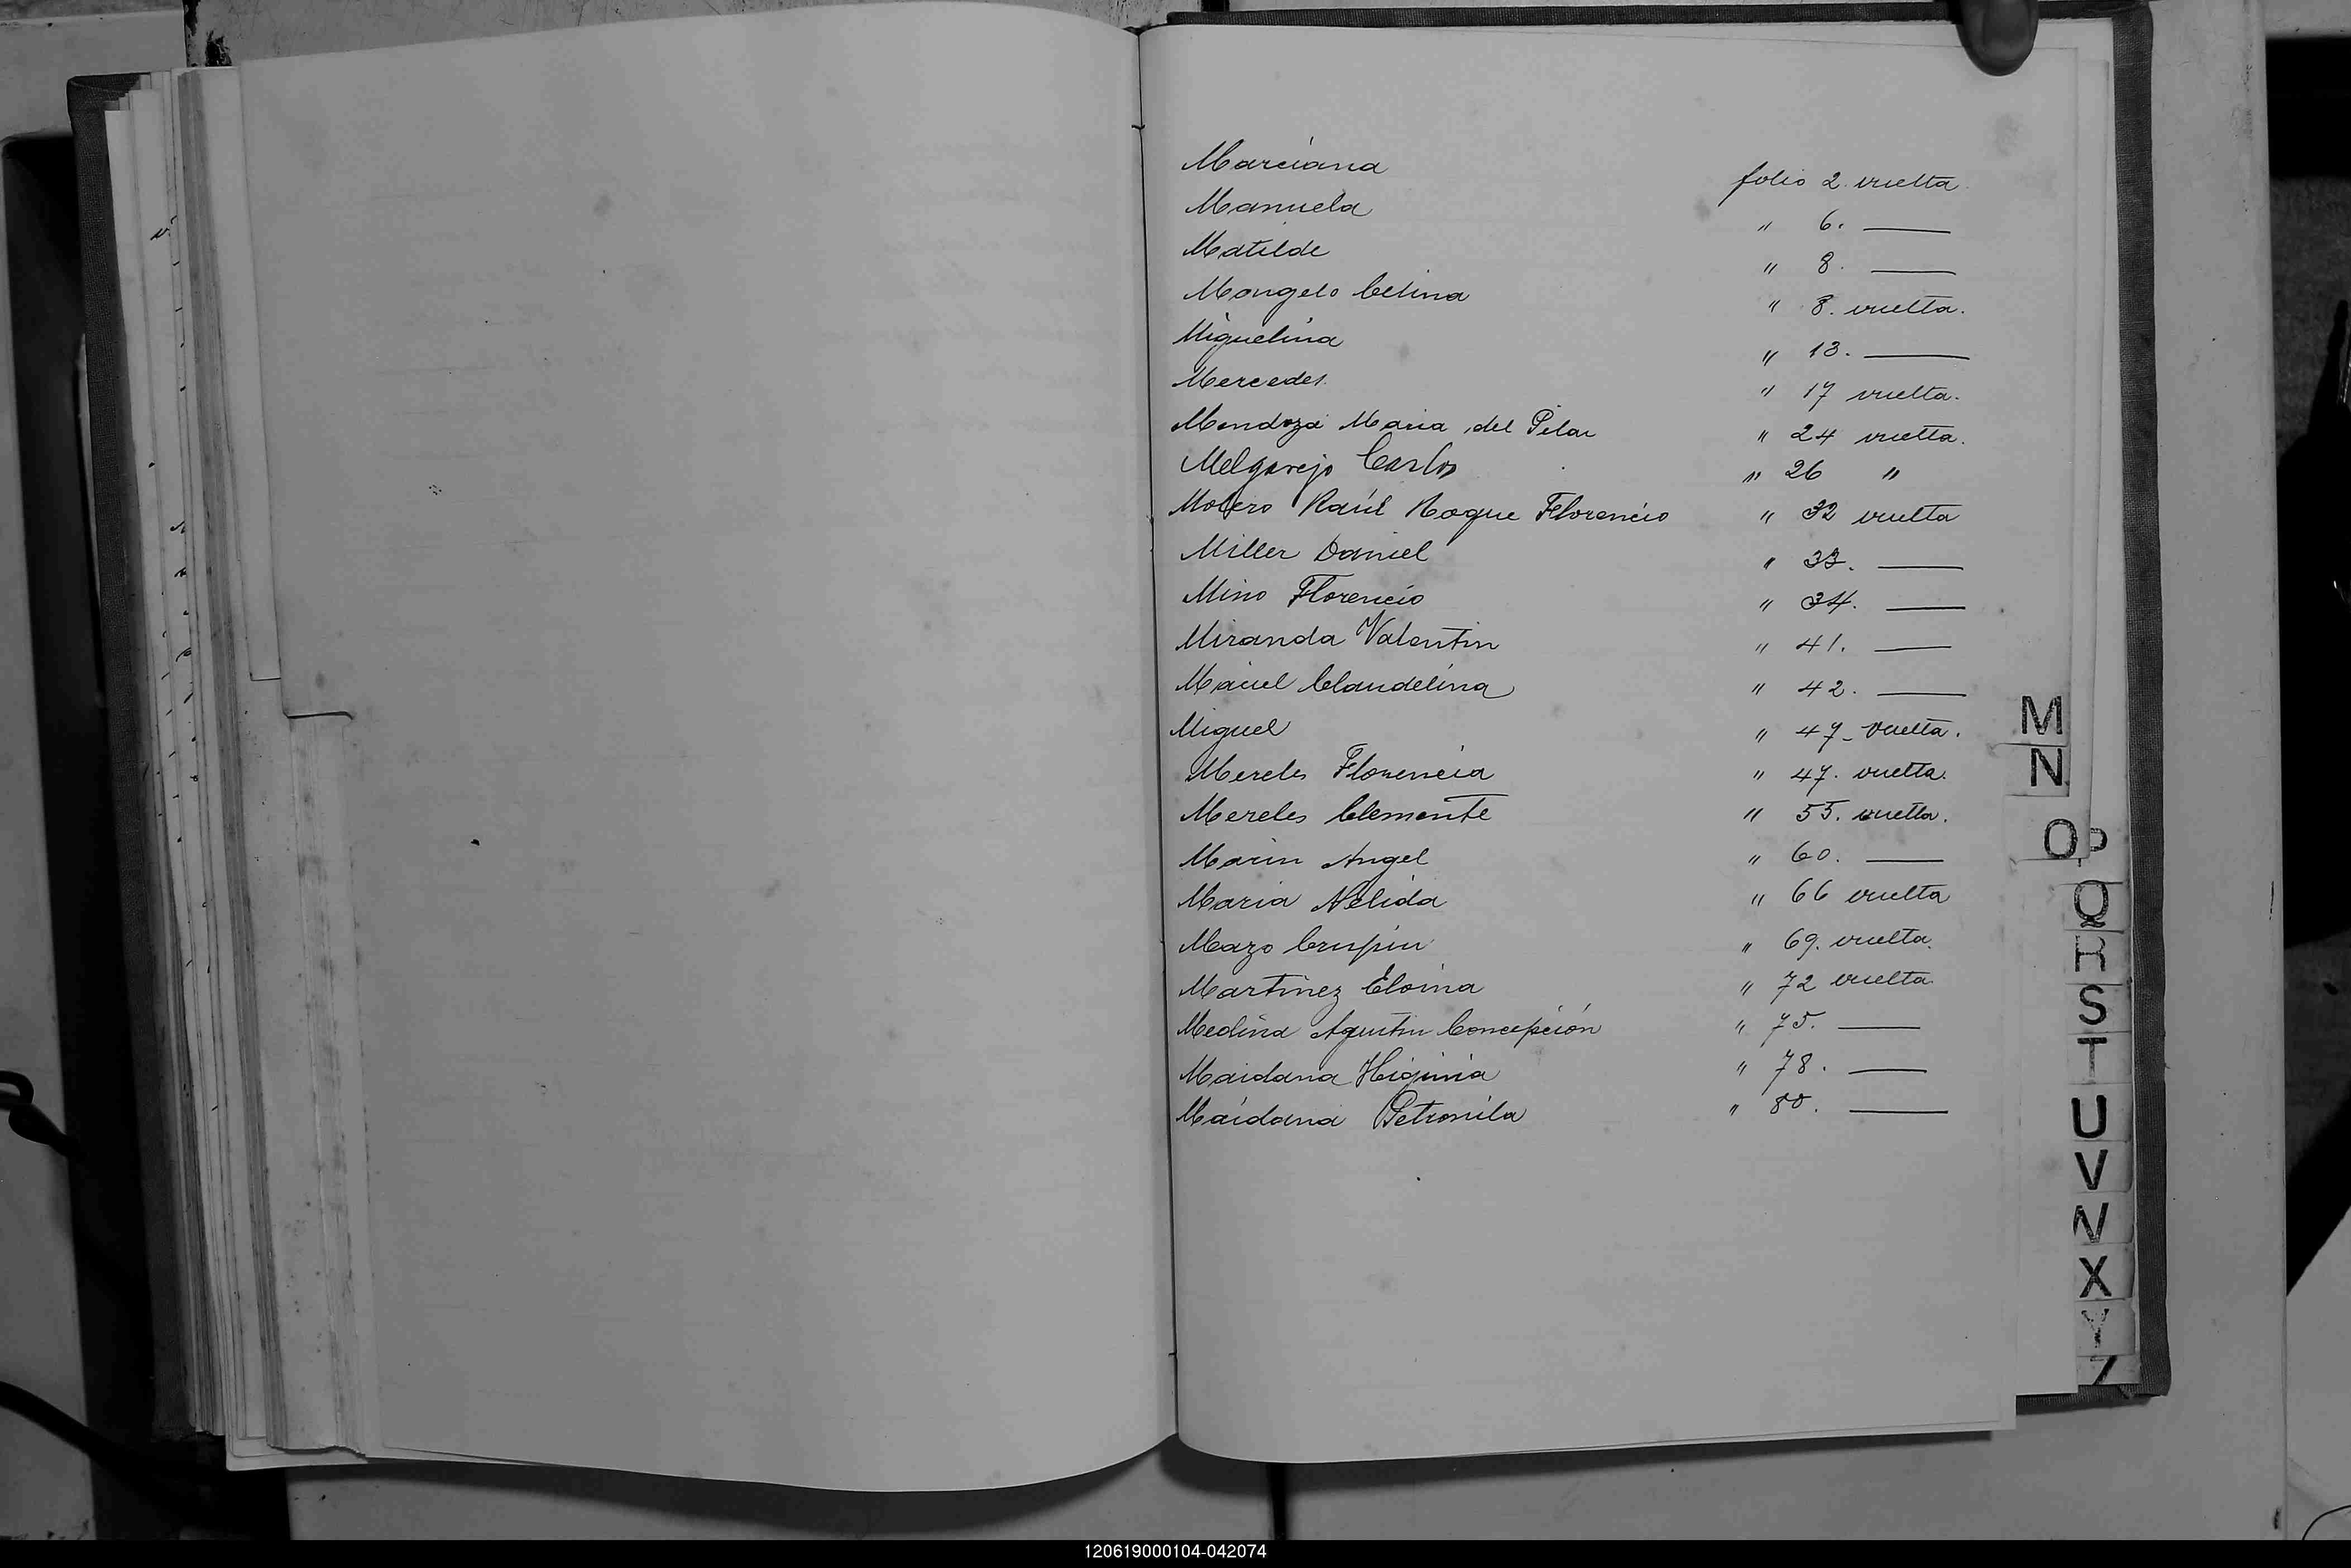 Marciana folio 2. vuelta
Manuela " 6. ___
Matilde " 8. ___
Mongelo Celina " 8. vuelta.
Miguelina " 13. ___
Mercedes. " 17 vuelta.
Mendoza Maria del Pilar " 24 vuelta.
Melgarejo Carlos " 26 "
Molero Raúl Roque Florencio " 32 vuelta
Miller Daniel " 33. ___
Mino Florencio " 34. ___
Miranda Valentin " 41. ___
Maciel Claudelina " 42. ___
Miguel " 47- vuelta.
Mereles Florencia " 47. vuelta.
Mereles Clemente " 55. vuelta.
Marin Angel " 60. ___
Maria Nelida " 66 vuelta
Mazo Crispin " 69. vuelta.
Martinez Eloina " 72 vuelta.
Medina Agustin Concepción " 75. ___
Maidana Higinia " 78. ___
Maidana Petronila " 80. ___
M
N
O P
Q
R
S
T
U
V
W
X
Y
Z
120619000104-042074